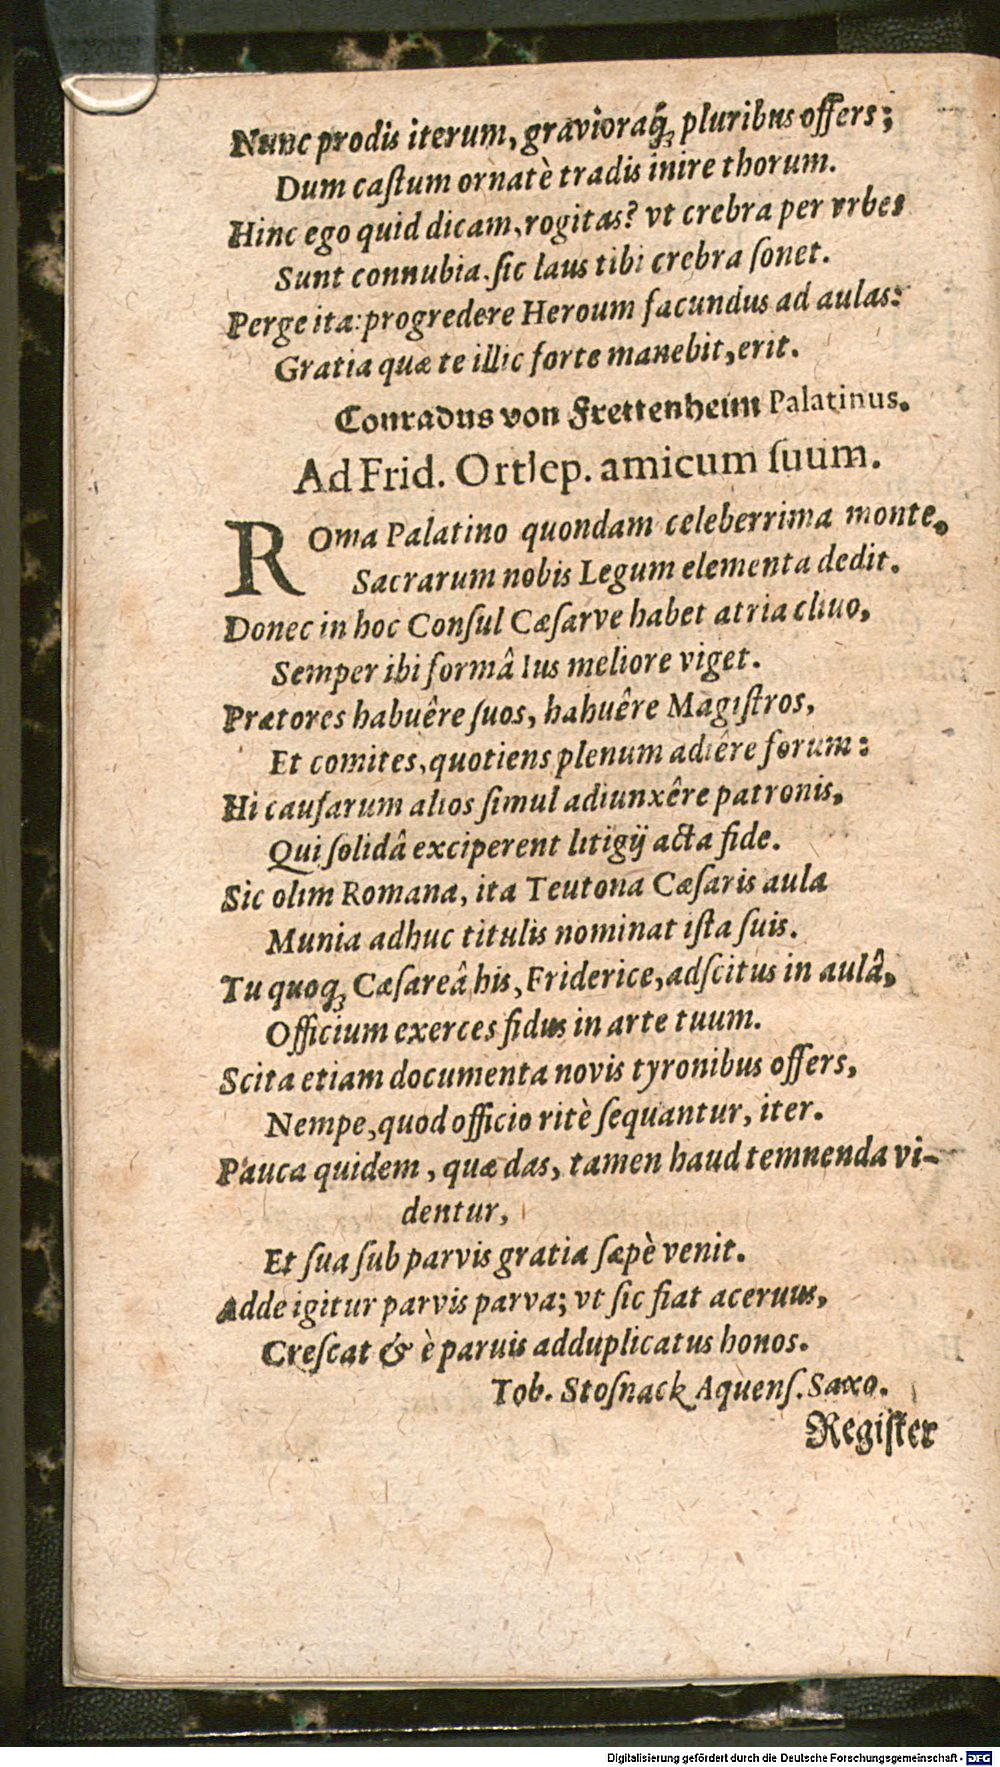 Nunc prodis iterum, gravioraq́ꝫ pluribus offers;
Dum caſtum ornatè tradis inire thorum.
Hinc ego quid dicam, rogitas? vt crebra per vrbes
Sunt connubia. ſic laus tibi crebra ſonet.
Perge ita: progredere Heroum facundus ad aulas:
Gratia quæ te illic forte manebit, erit.
Conradus von Frettenheim Palatinus.
Ad Frid. Ortlep. amicum ſuum.
ROma Palatino quondam celeberrima monte,
Sacrarum nobis Legum elementa dedit.
Donec in hoc Conſul Cæſarve habet atria clivo,
Semper ibi formâ Ius meliore viget.
Prætores habuêre ſuos, habuêre Magiſtros,
Et comites, quotiens plenum adiêre forum:
Hi cauſarum alios ſimul adiunxêre patronis,
Qui ſolidâ exciperent litigij acta fide.
Sic olim Romana, ita Teutona Cæſaris aula
Munia adhuc titulis nominat iſta ſuis.
Tu quoqꝫ Cæſareâ his, Friderice, adſcitus in aulâ,
Officium exerces fidus in arte tuum.
Scita etiam documenta novis tyronibus offers,
Nempe, quod officio ritè ſequantur, iter.
Pauca quidem, quæ das, tamen haud temnenda vi-
dentur,
Et ſua ſub parvis gratia ſæpè venit.
Adde igitur parvis parva; vt ſic fiat aceruus,
Creſcat & è paruis adduplicatus honos.
Tob. Stoſnack Aquenſ. Saxo.
Regiſter
Digitalisierung gefördert durch die Deutsche Forschungsgemeinschaft - DFG